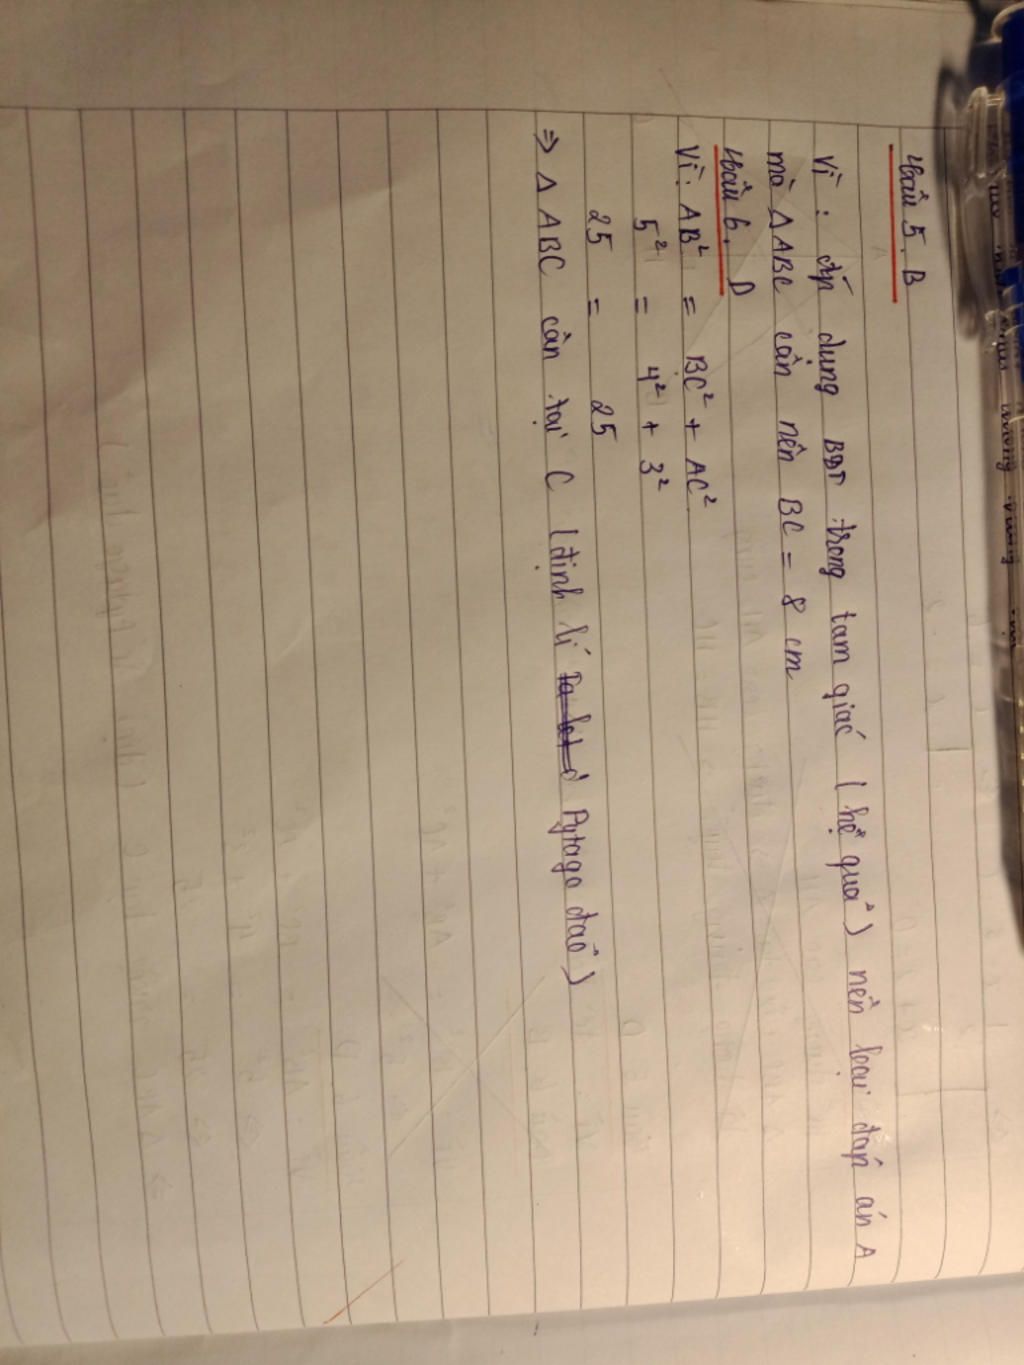 Câu 5. B
Vì : áp dụng BĐT trong tam giác ( hệ quả ) nên loại đáp án A
mà Δ ABC cân nên BC = 8 cm
Câu 6. D
Vì: AB² = BC² + AC²
5² = 4² + 3²
25 = 25
⇒ Δ ABC cân tại C ( định lí Pytago đảo )